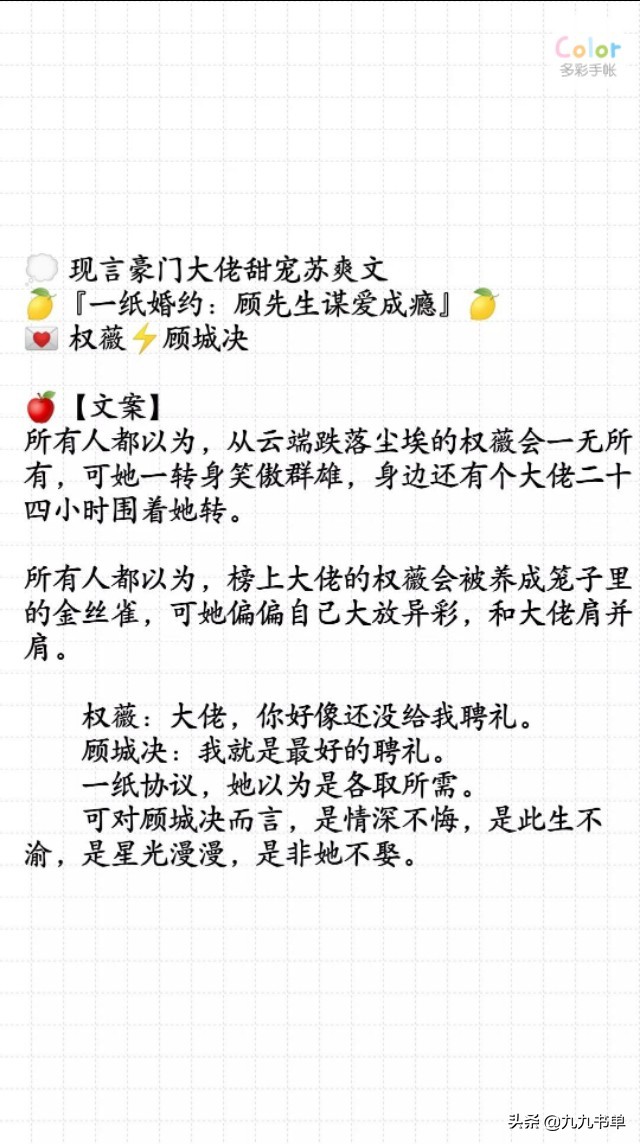 Color
多彩手帐
💭 现言豪门大佬甜宠苏爽文
🍋『一纸婚约：顾先生谋爱成瘾』🍋
💌 权薇⚡顾城决
🍎【文案】
所有人都以为，从云端跌落尘埃的权薇会一无所
有，可她一转身笑傲群雄，身边还有个大佬二十
四小时围着她转。
所有人都以为，榜上大佬的权薇会被养成笼子里
的金丝雀，可她偏偏自己大放异彩，和大佬肩并
肩。
权薇：大佬，你好像还没给我聘礼。
顾城决：我就是最好的聘礼。
一纸协议，她以为是各取所需。
可对顾城决而言，是情深不悔，是此生不
渝，是星光漫漫，是非她不娶。
头条 @九九书单